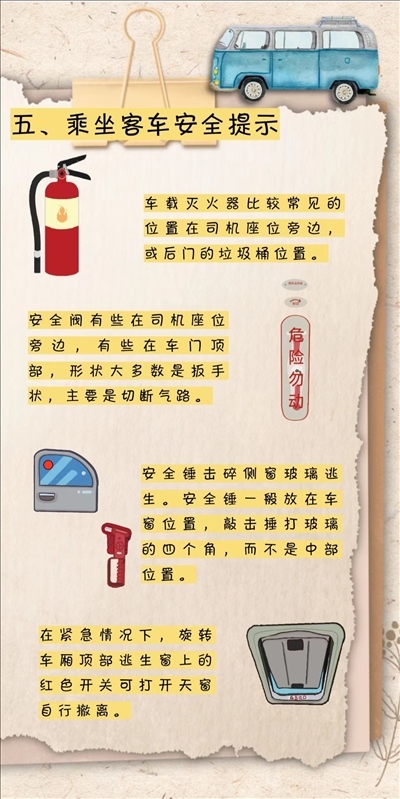 五、乘坐客车安全提示
车载灭火器比较常见的
位置在司机座位旁边，
或后门的垃圾桶位置。
安全阀有些在司机座位
旁边，有些在车门顶
部，形状大多数是扳手
状，主要是切断气路。
危险勿动
安全锤击碎侧窗玻璃逃
生。安全锤一般放在车
窗位置，敲击捶打玻璃
的四个角，而不是中部
位置。
在紧急情况下，旋转
车厢顶部逃生窗上的
红色开关可打开天窗
自行撤离。